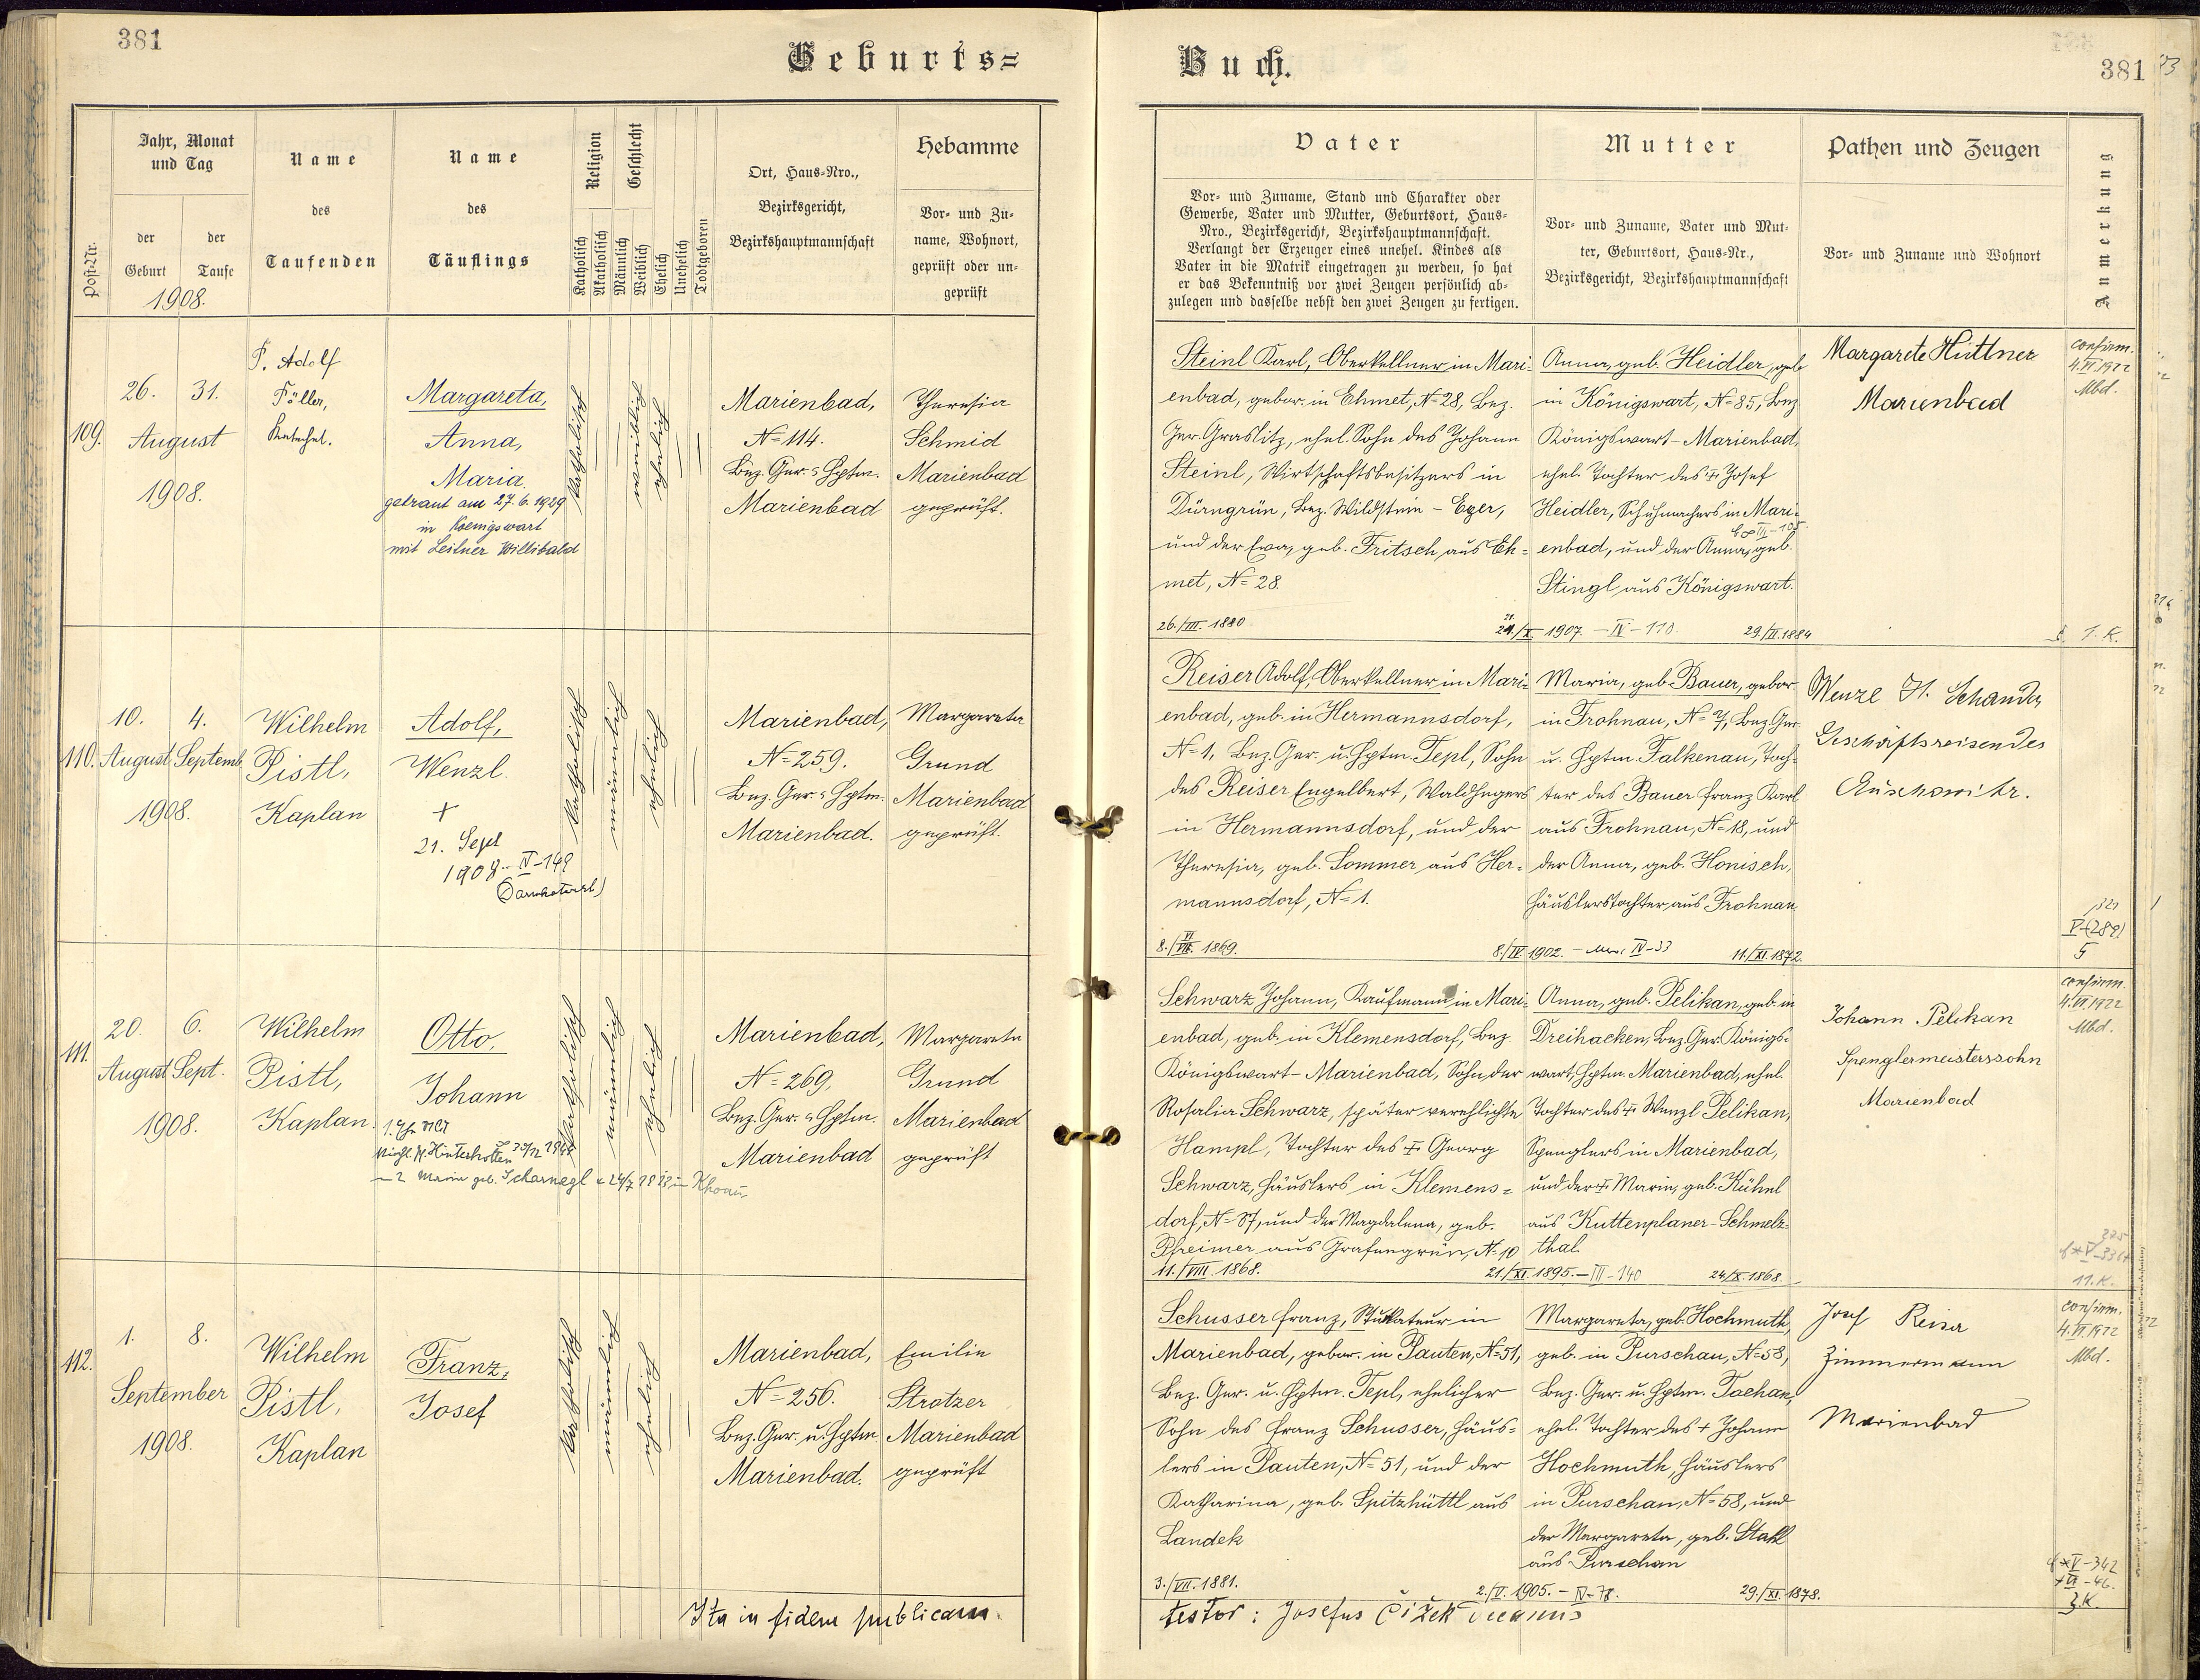 381
Geburts=
Jahr, Monat
und Tag
der
Geburt
der
Taufe
1908.
Post-Nr.
Name
des
Taufenden
Name
des
Täuflings
Religion
Katholisch
Akatholisch
Geschlecht
Männlich
Weiblich
Ehelich
Unehelich
Todtgeboren
Ort, Haus-Nro.,
Bezirksgericht,
Bezirkshauptmannschaft
Hebamme
Vor- und Zu-
name, Wohnort,
geprüft oder un-
geprüft
109.
26. 31.
August
1908.
P. Adolf
Föller,
Katechet.
Margareta,
Anna,
Maria.
getraut am 27.6.1939
in Koenigswart
mit Leitner Willibald
katholisch
weiblich
ehelich
Marienbad,
N= 114.
Bez. Ger. u Hptm.
Marienbad
Theresia
Schmid
Marienbad
geprüft.
110.
10. 4.
August Septemb.
1908.
Wilhelm
Pistl,
Kaplan
Adolf,
Wenzl.
+
21. Sept
1908.. IV-149
(Darmkatarrh)
katholisch
männlich
ehelich
Marienbad,
N= 259.
Bez. Ger. u Hptm.
Marienbad.
Margareta
Grund
Marienbad
geprüft.
111.
20. 6.
August Sept.
1908.
Wilhelm
Pistl,
Kaplan.
Otto,
Johann
katholisch
männlich
ehelich
Marienbad,
N= 269,
Bez. Ger. u Hptm.
Marienbad
Margareta
Grund
Marienbad
geprüft
112.
1. 8.
September
1908.
Wilhelm
Pistl,
Kaplan
Franz,
Josef
katholisch
männlich
ehelich
Marienbad,
N= 256.
Bez. Ger. u. Hptm
Marienbad.
Emilie
Strotzer
Marienbad
geprüft
Ita in fidem publicam.
Buch.
381
Vater
Vor- und Zuname, Stand und Charakter oder
Gewerbe, Vater und Mutter, Geburtsort, Haus-
Nro., Bezirksgericht, Bezirkshauptmannschaft.
Verlangt der Erzeuger eines unehel. Kindes als
Vater in die Matrik eingetragen zu werden, so hat
er das Bekenntniß vor zwei Zeugen persönlich ab-
zulegen und dasselbe nebst den zwei Zeugen zu fertigen.
Mutter
Vor- und Zuname, Vater und Mut-
ter, Geburtsort, Haus-Nr.,
Bezirksgericht, Bezirkshauptmannschaft
Pathen und Zeugen
Vor- und Zuname und Wohnort
Anmerkung
Steinl Karl, Oberkellner in Mari-
enbad, gebor. in Ehmet, N= 28, Bez.
Ger. Graslitz, ehel. Sohn des Johann
Steinl, Wirtschaftsbesitzers in
Dürngrün, Bez. Wildstein - Eger,
und der Eva, geb. Fritsch aus Eh=
met, N= 28.
26./III. 1880
Anna, geb. Heidler, geb
in Königswart, N= 85, Bez
Königswart - Marienbad,
ehel. Tochter des + Josef
Heidler, Schuhmachers in Mari=
enbad, und der Anna, geb.
Stingl aus Königswart.
1907. - IV - 110.
Margarete Hüttner
Marienbad
confirm.
4.VI.1922
Mbd.
Reiser Adolf, Oberkellner in Mari-
enbad, geb. in Hermannsdorf,
N= 1, Bez. Ger. u. Hptm. Tepl, Sohn
des Reiser Engelbert, Waldhegers
in Hermannsdorf, und der
Theresia, geb. Sommer aus Her=
mannsdorf, N= 1.
Maria, geb. Bauer, gebor.
in Frohnau, N= 7, Bez. Ger.
u. Hptm. Falkenau, Toch-
ter des Bauer Franz Karl
aus Frohnau, N= 18, und
der Anna, geb. Honisch,
Häuslerstochter aus Frohnau
11./XI. 1872.
Wenzl H. Schanda,
Geschäftsreisender
Auschowitz.
Schwarz Johann, Kaufmann in Mari-
enbad, geb. in Klemensdorf, Bez
Königswart - Marienbad, Sohn der
Rosalia Schwarz, später verehlichte
Hampl, Tochter des + Georg
Schwarz, Häuslers in Klemens=
dorf, N= 87, und der Magdalena, geb.
Pfreimer aus Grafengrün, N= 10
11./VIII. 1868.
21./XI. 1895. - III - 140
Anna, geb. Pelikan, geb. in
Dreihacken, Bez. Ger. Königs-
wart, Hptm. Marienbad, ehel.
Tochter des + Wenzl Pelikan,
Spenglers in Marienbad,
und der + Maria, geb. Kühnl
aus Kuttenplaner-Schmelz-
thal.
24/X. 1868.
Johann Pelikan
Spenglermeisterssohn
Marienbad
confirm.
4.VI.1922
Mbd.
Schusser Franz, Stukkateur in
Marienbad, gebor. in Pauten, N= 51,
Bez. Ger. u. Hptm. Tepl, ehelicher
Sohn des Franz Schusser, Häus=
lers in Pauten, N= 51, und der
Katharina, geb. Spitzhüttl aus
Landek
3./VII. 1881.
2./V. 1905. - IV - 78.
Margareta, geb. Hochmuth,
geb. in Purschau, N= 58,
Bez. Ger. u. Hptm. Tachau,
ehel. Tochter des + Johann
Hochmuth, Häuslers
in Purschau, N= 58, und
der Margareta, geb. Stahl
aus Purschau
29./XI. 1878.
Josef Reiser
Zimmermann
Marienbad
confirm.
4.VI.1922
Mbd.
testor: Josefus Čižek decanus